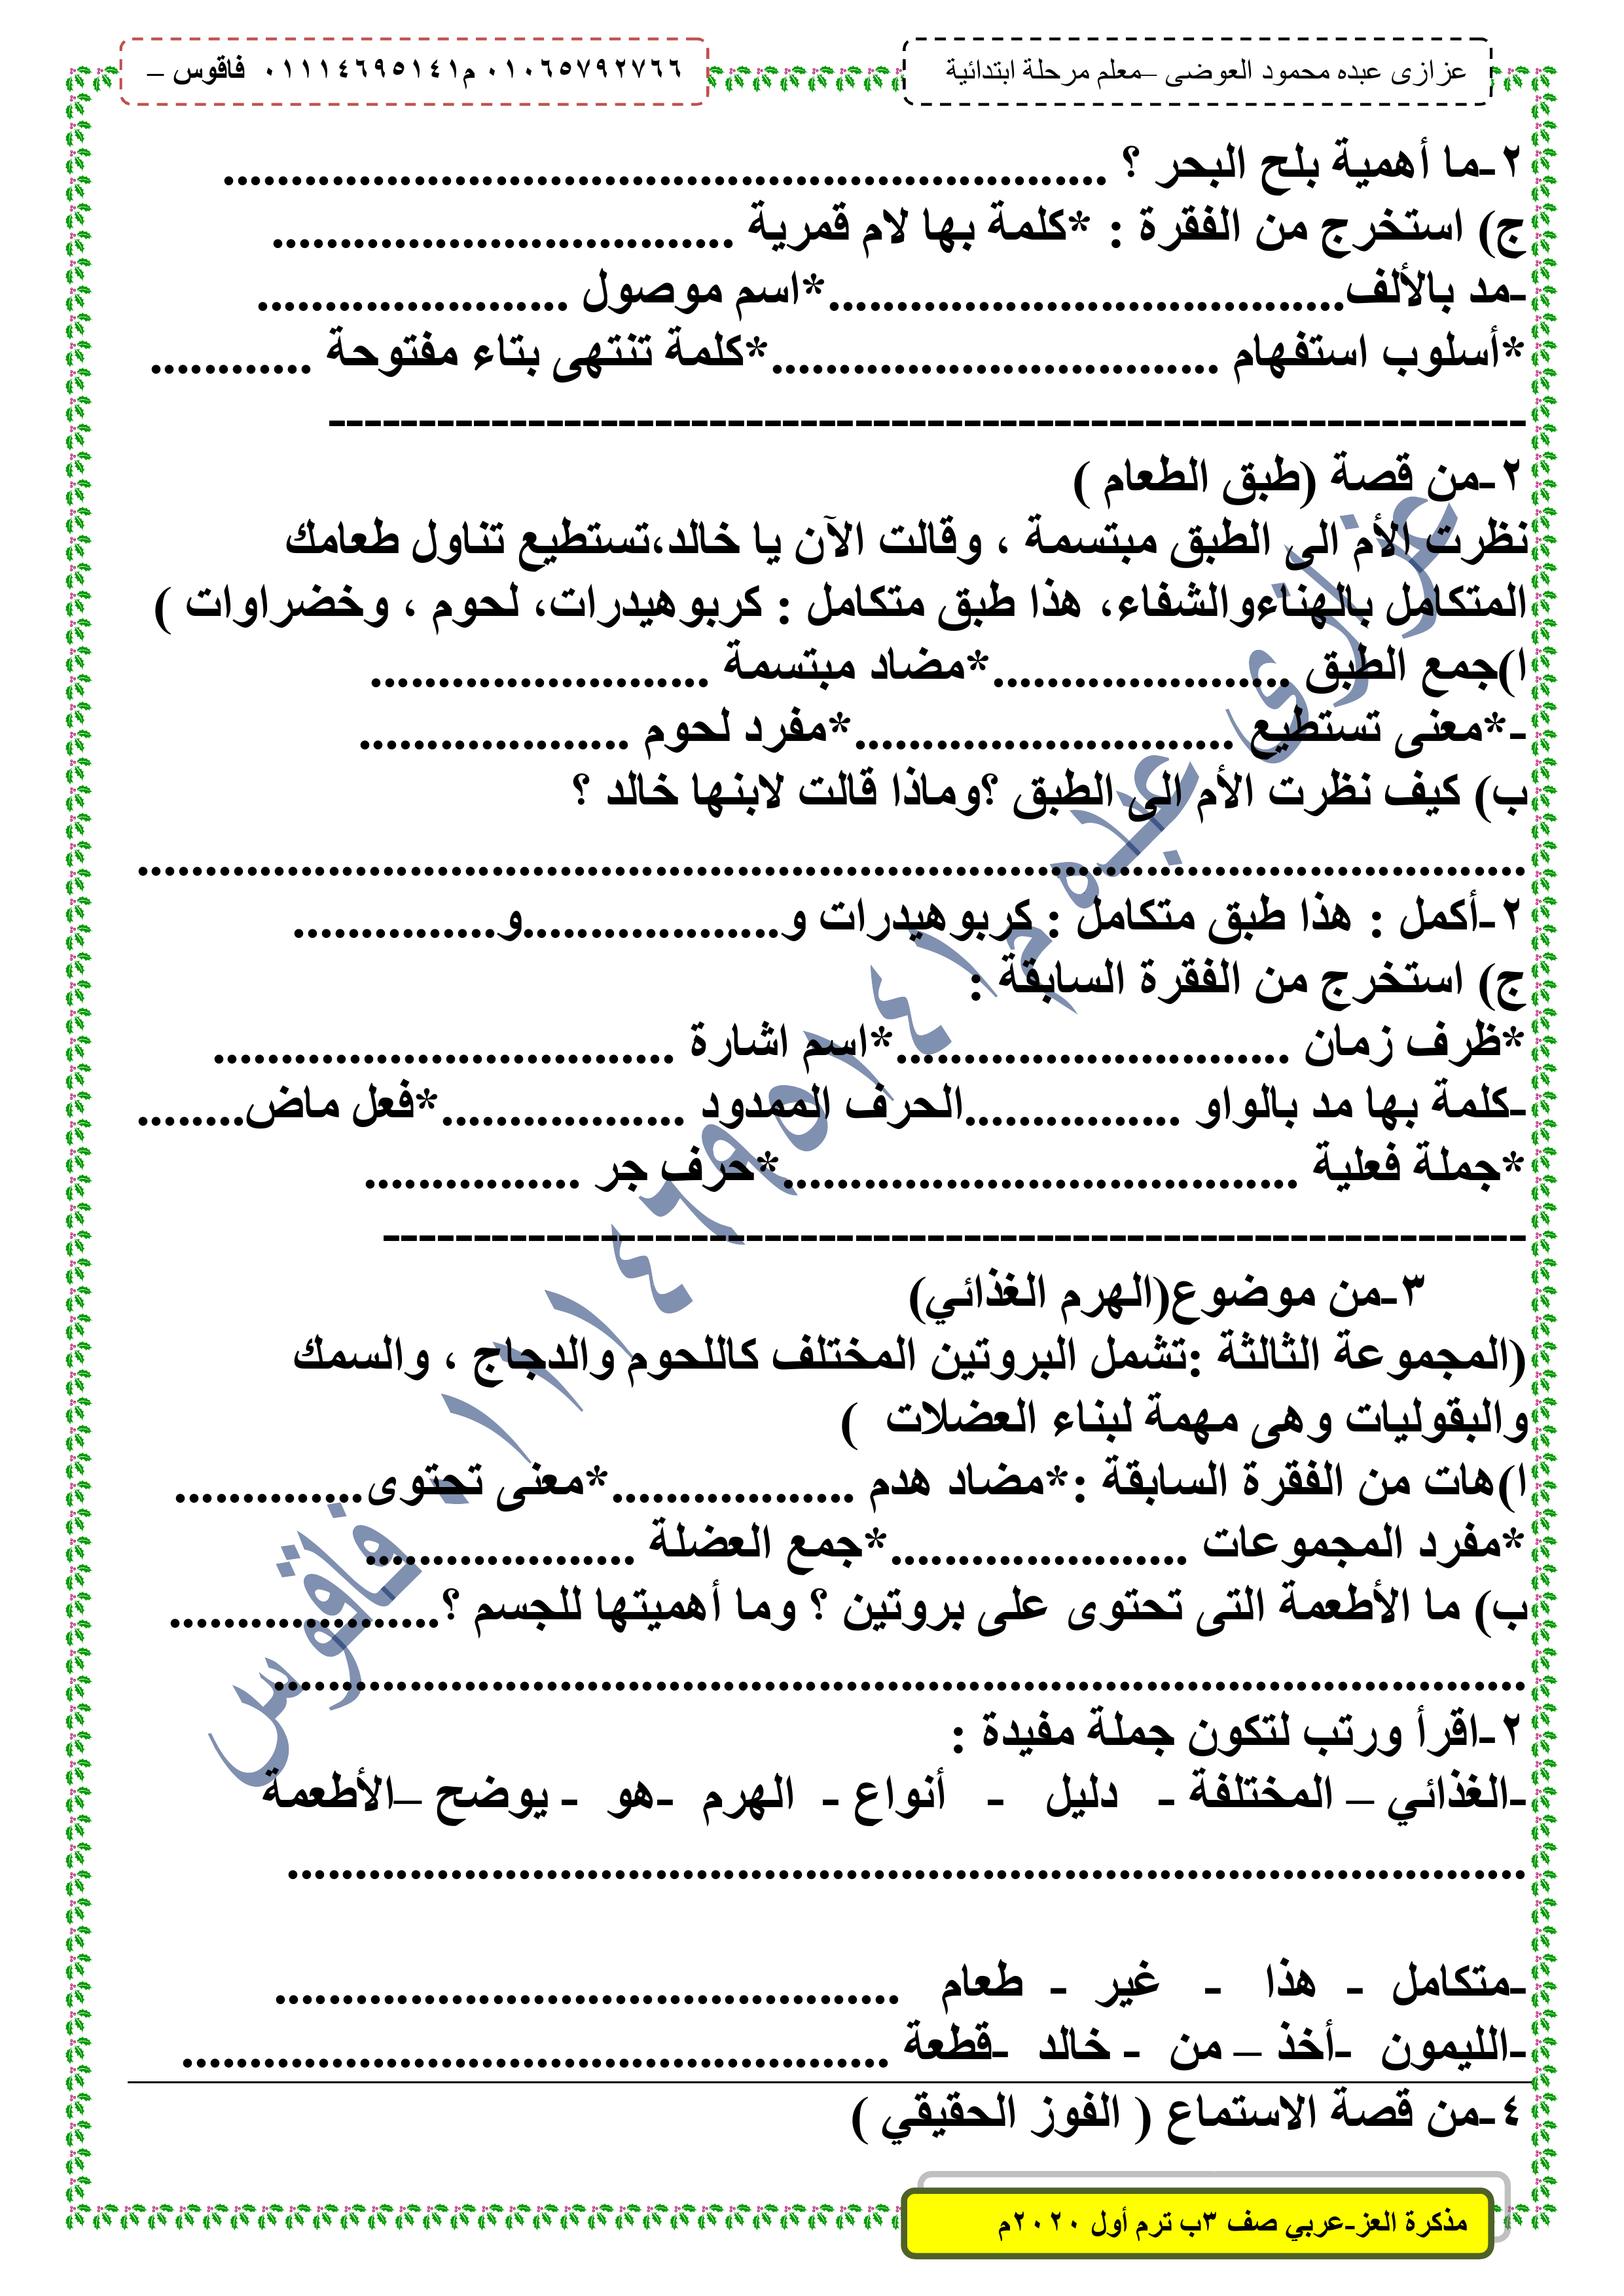 عزازى عبده محمود العوضى –معلم مرحلة ابتدائية
٠١٠٦٥٧٩٢٧٦٦ م٠١١١٤٦٩٥١٤١ فاقوس –
٢-ما أهمية بلح البحر ؟ .................................................................
ج) استخرج من الفقرة : *كلمة بها لام قمرية ..................................
-مد بالألف......................................*اسم موصول .......................
*أسلوب استفهام .................................*كلمة تنتهى بتاء مفتوحة ............
--------------------------------------------------------------------
٢-من قصة (طبق الطعام )
نظرت الأم الى الطبق مبتسمة ، وقالت الآن يا خالد،تستطيع تناول طعامك
المتكامل بالهناءوالشفاء، هذا طبق متكامل : كربوهيدرات، لحوم ، وخضراوات )
ا)جمع الطبق ......................*مضاد مبتسمة .........................
-*معنى تستطيع ............................*مفرد لحوم ....................
ب) كيف نظرت الأم الى الطبق ؟وماذا قالت لابنها خالد ؟
......................................................................................................
٢-أكمل : هذا طبق متكامل : كربوهيدرات و...................و...............
ج) استخرج من الفقرة السابقة :
*ظرف زمان .............................*اسم اشارة ..................................
-كلمة بها مد بالواو ................الحرف الممدود ..................*فعل ماض........
*جملة فعلية ......................................*حرف جر ................
-----------------------------------------------------------------
٣-من موضوع(الهرم الغذائي)
(المجموعة الثالثة :تشمل البروتين المختلف كاللحوم والدجاج ، والسمك
والبقوليات وهى مهمة لبناء العضلات )
ا)هات من الفقرة السابقة :*مضاد هدم ..................*معنى تحتوى..............
*مفرد المجموعات ......................*جمع العضلة ....................
ب) ما الأطعمة التى تحتوى على بروتين ؟ وما أهميتها للجسم ؟....................
............................................................................................
٢-اقرأ ورتب لتكون جملة مفيدة :
-الغذائي – المختلفة - دليل - أنواع - الهرم -هو - يوضح –الأطعمة
...........................................................................................
-متكامل - هذا - غير - طعام ..............................................
-الليمون -أخذ – من - خالد -قطعة ....................................................
٤-من قصة الاستماع ( الفوز الحقيقي )
مذكرة العز-عربي صف ٣ب ترم أول ٢٠٢٠م
عزازى عبده م٠١١١٤٦٩٥١٤١ فاقوس